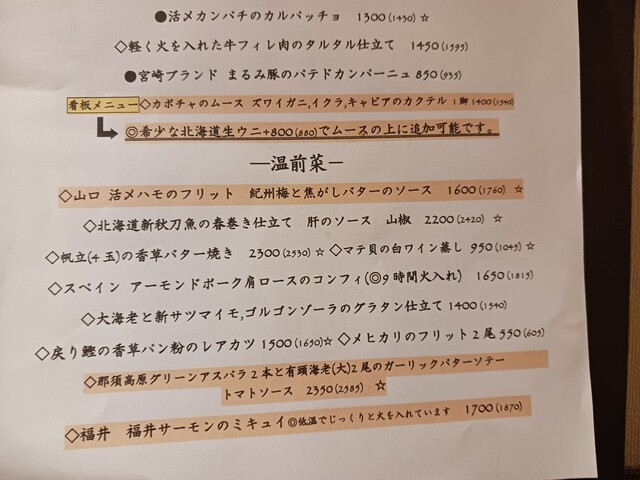 ●活メカンパチのカルパッチョ　1300(1430) ☆
◇軽く火を入れた牛フィレ肉のタルタル仕立て　1450(1595)
●宮崎ブランド まるみ豚のパテドカンパーニュ 850(935)
看板メニュー◇カボチャのムース ズワイガニ,イクラ,キャビアのカクテル 1脚 1400(1540)
◎希少な北海道生ウニ+800(880)でムースの上に追加可能です。
―温前菜―
◇山口 活メハモのフリット　紀州梅と焦がしバターのソース　1600(1760) ☆
◇北海道新秋刀魚の春巻き仕立て 肝のソース　山椒　2200(2420) ☆
◇帆立(4玉)の香草バター焼き　2300(2530) ☆ ◇マテ貝の白ワイン蒸し 950(1045) ☆
◇スペイン アーモンドポーク肩ロースのコンフィ(◎9時間火入れ)　1650(1815)
◇大海老と新サツマイモ,ゴルゴンゾーラのグラタン仕立て 1400(1540)
◇戻り鰹の香草パン粉のレアカツ 1500(1650)☆ ◇メヒカリのフリット2尾 550(605)
◇那須高原グリーンアスパラ2本と有頭海老(大)2尾のガーリックバターソテー
トマトソース　2350(2585)　☆
◇福井　福井サーモンのミキュイ◎低温でじっくりと火を入れています　1700(1870)